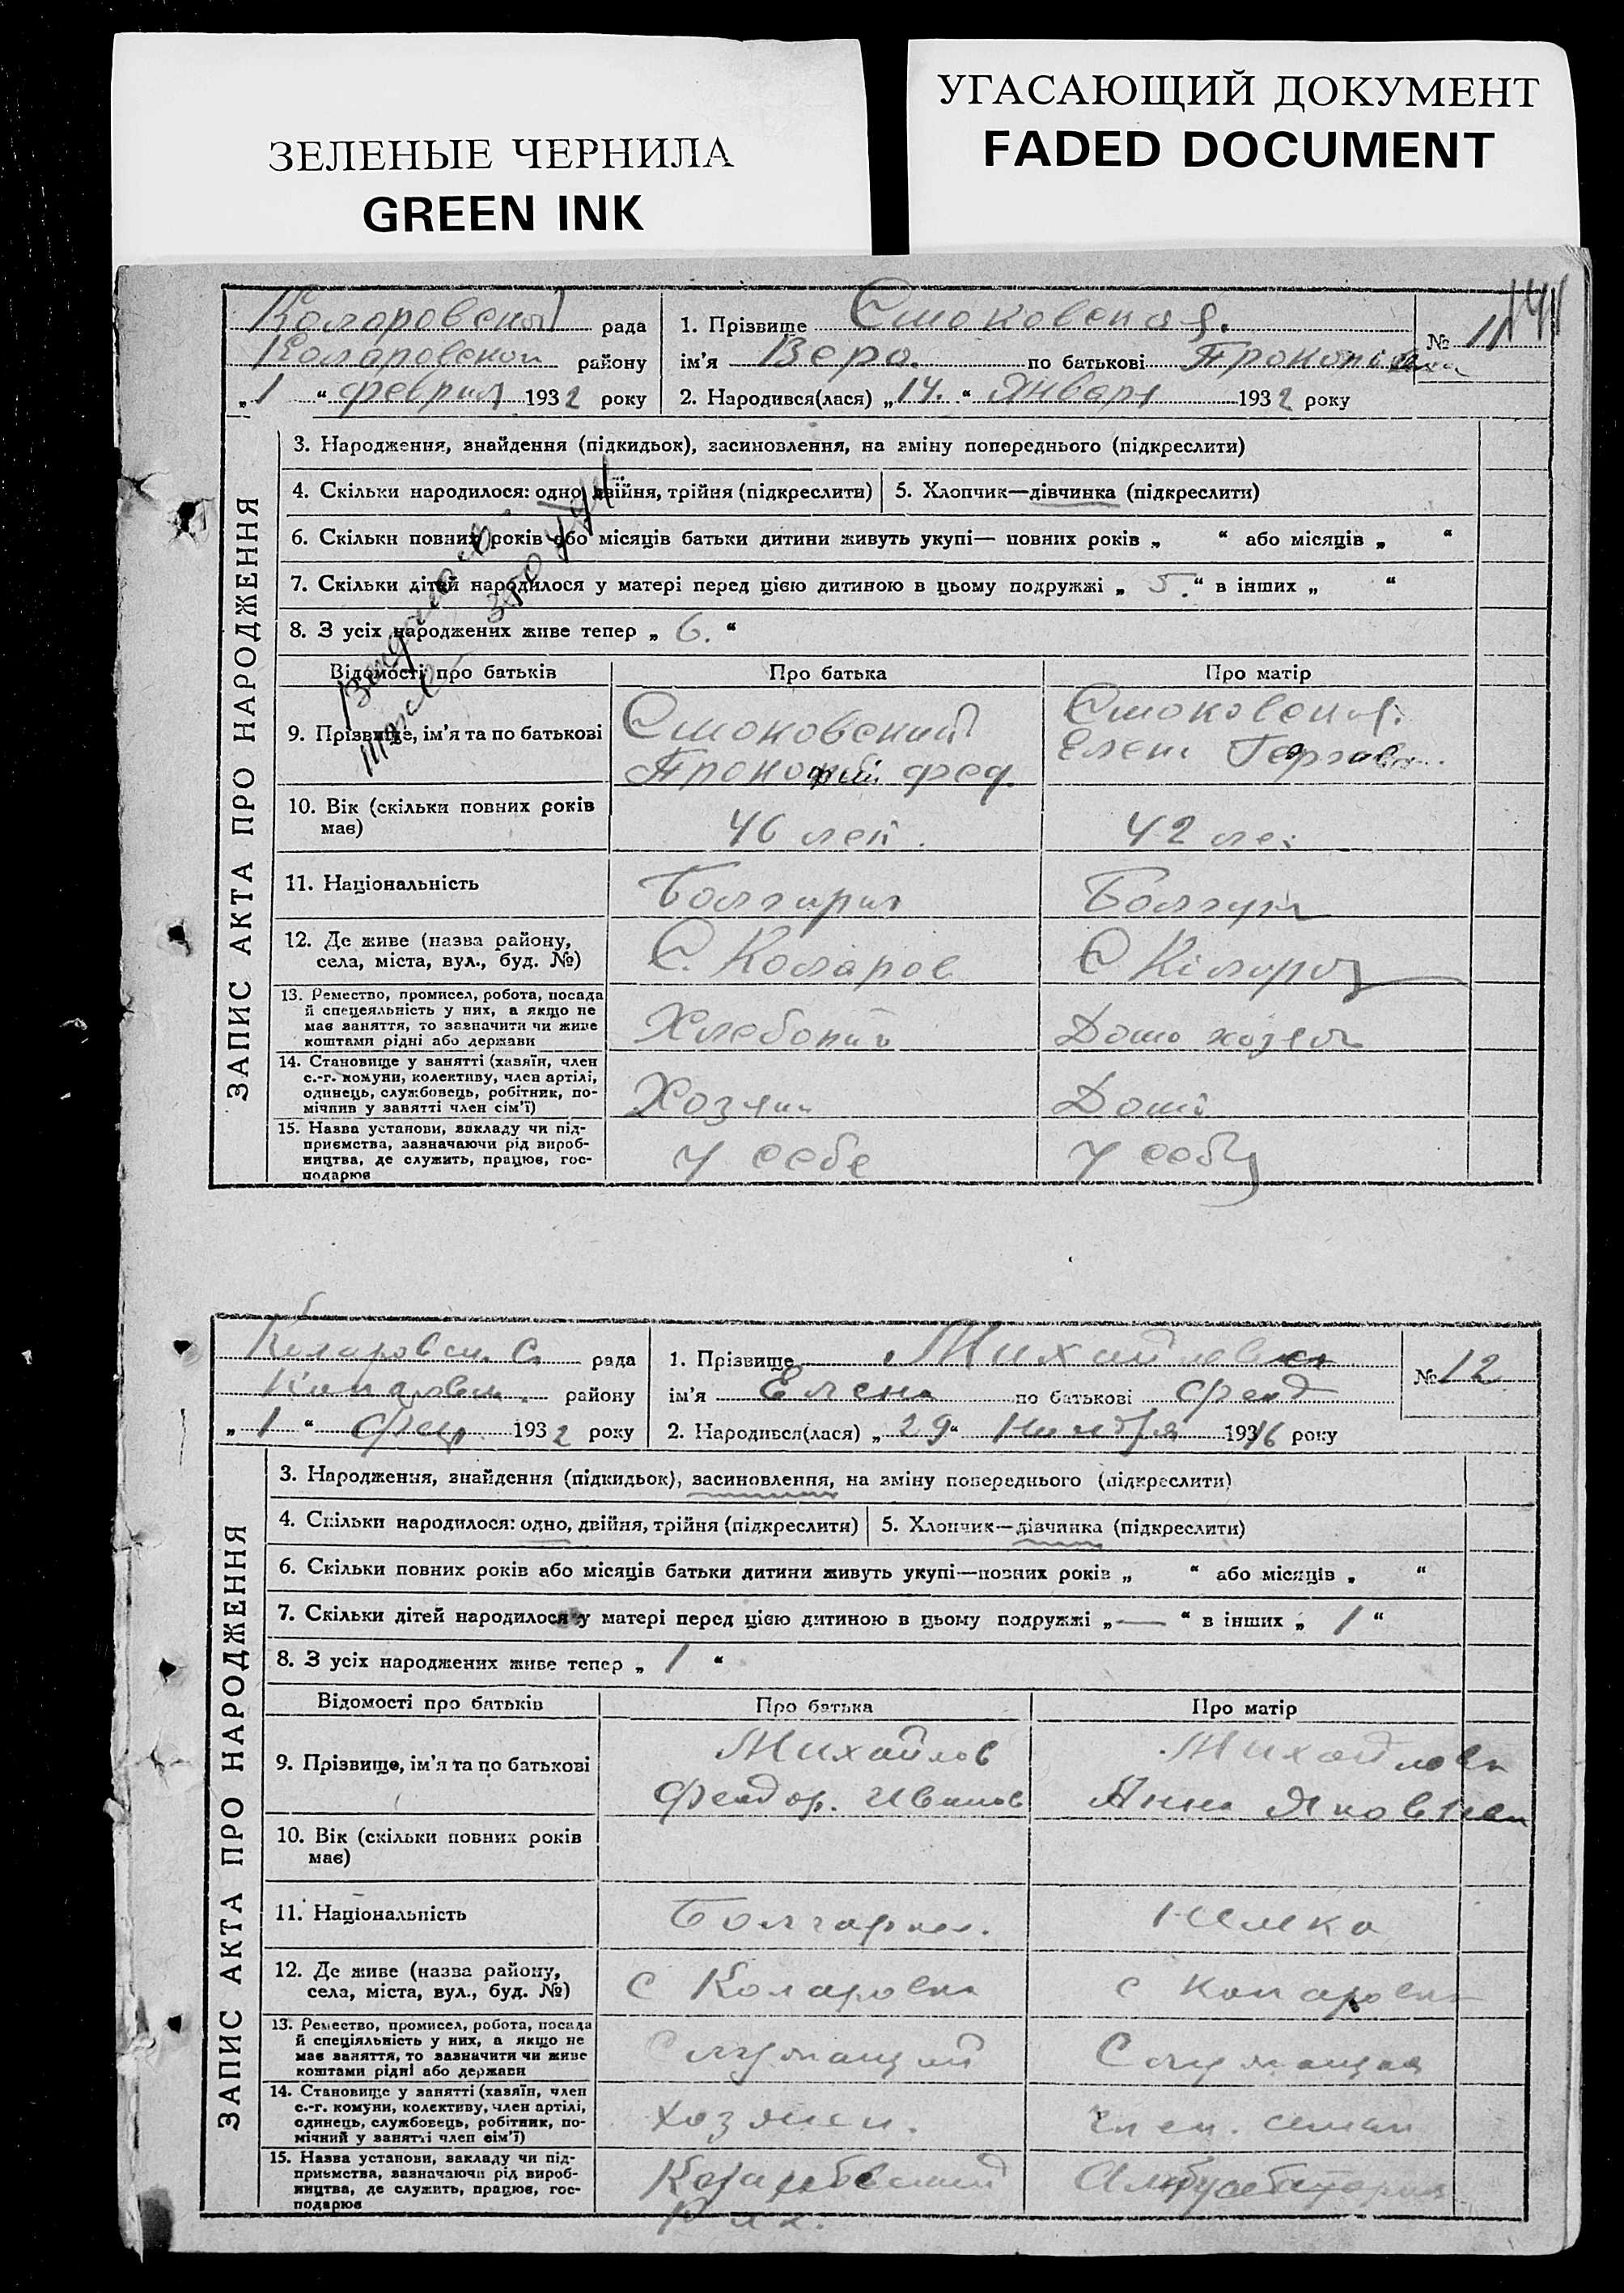 УГАСАЮЩИЙ ДОКУМЕНТ
FADED DOCUMENT
ЗЕЛЕНЫЕ ЧЕРНИЛА
GREEN INK
рада
Коларовской району
„1“ феврал 1932 року
1. Прізвище Стоковская.
ім'я Вера. по батькові
2. Народився(лася) „14.“ Января 1932 року
№ 11
141
ЗАПИС АКТА ПРО НАРОДЖЕННЯ
3. Народження, знайдення (підкидьок), засиновлення, на зміну попереднього (підкреслити)
4. Скільки народилося: одно, двійня, трійня (підкреслити)
5. Хлопчик—дівчинка (підкреслити)
6. Скільки повних років або місяців батьки дитини живуть укупі— повних років „ “ або місяців „ “
7. Скільки дітей народилося у матері перед цією дитиною в цьому подружжі „ 5. “ в інших „ “
8. З усіх народжених живе тепер „ 6. “
Відомості про батьків
Про батька
Про матір
9. Прізвище, ім'я та по батькові
Стоковский
фед.
Елена
10. Вік (скільки повних років
має)
46 лет.
42 ле
11. Національність
12. Де живе (назва району,
села, міста, вул., буд. №)
С. Коларов
С
13. Ремество, промисел, робота, посада
й спецеяльність у них, а якщо не
має заняття, то зазначити чи живе
коштами рідні або держави
Домо
14. Становище у занятті (хазяїн, член
с.-г. комуни, колективу, член артілі,
одинець, службовець, робітник, по-
мічнив у занятті член сім'ї)
Хозяин
15. Назва установи, закладу чи під-
приємства, зазначаючи рід вироб-
ництва, де служить, працює, гос-
подарює
У себе
У себя
рада
району
„1“ 1932 року
1. Прізвище Михайлова
ім'я Елена по батькові
2. Народився(лася) „29“ року
№ 12
ЗАПИС АКТА ПРО НАРОДЖЕННЯ
3. Народження, знайдення (підкидьок), засиновлення, на зміну попереднього (підкреслити)
4. Скільки народилося: одно, двійня, трійня (підкреслити)
5. Хлопчик—дівчинка (підкреслити)
6. Скільки повних років або місяців батьки дитини живуть укупі—повних років „ “ або місяців „ “
7. Скільки дітей народилося у матері перед цією дитиною в цьому подружжі „—“ в інших „ 1 “
8. З усіх народжених живе тепер „ 1 “
Відомості про батьків
Про батька
Про матір
9. Прізвище, ім'я та по батькові
Михайлов
Иванов
Михайлова
Анна
10. Вік (скільки повних років
має)
11. Національність
Немка
12. Де живе (назва району,
села, міста, вул., буд. №)
с Коларовка
с Коларовка
13. Ремество, промисел, робота, посада
й спеціяльність у них, а якщо не
має заняття, то зазначити чи живе
коштами рідні або держави
Служащий
Служащая
14. Становище у занятті (хазяїн, член
с.-г. комуни, колективу, член артілі,
одинець, службовець, робітник, по-
мічний у занятті член сім'ї)
хозяин.
член. семьи
15. Назва установи, закладу чи під-
приємства, зазначаючи рід вироб-
ництва, де служить, працює, гос-
подарює